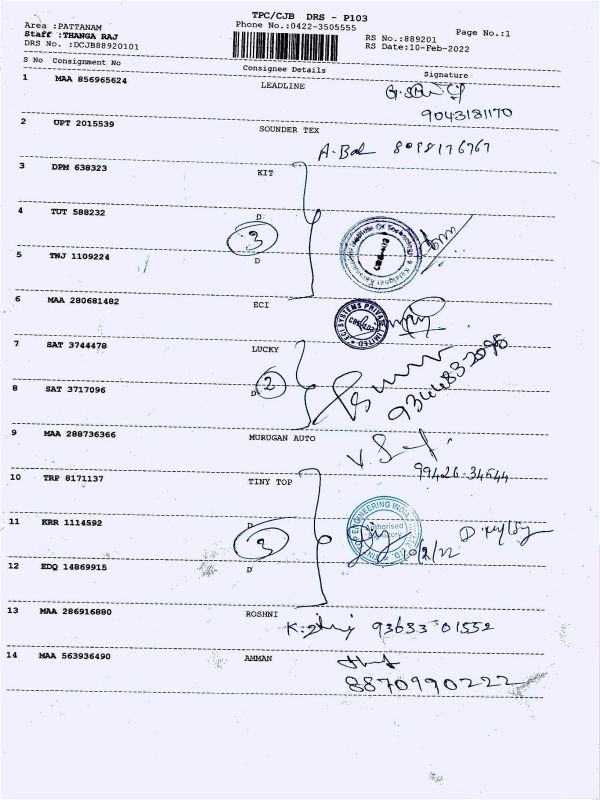 TPC/CJB DRS - P103
Area :PATTANAM Phone No.:0422-3505555 Page No.:1
Staff :THANGA RAJ RS No.:889201
DRS No. :DCJB88920101 RS Date:10-Feb-2022
S No Consignment No Consignee Details Signature
1 MAA 856965624 LEADLINE
9043181170
2 UPT 2015539 SOUNDER TEX
3 DPM 638323 KIT
4 TUT 588232 D
3
5 TNJ 1109224 D
6 MAA 280681482 ECI
ECI SYSTEMS PRIVATE LIMITED
7 SAT 3744478 LUCKY
8 SAT 3717096 D 2
9 MAA 288736366 MURUGAN AUTO
99426-34644
10 TRP 8171137 TINY TOP
ENGINEERING INDIA
Authorised
11 KRR 1114592 D
3
10/2/22
12 EDQ 14869915 D
13 MAA 286916880 ROSHNI
93633 01552
14 MAA 563936490 AMMAN
8870990222